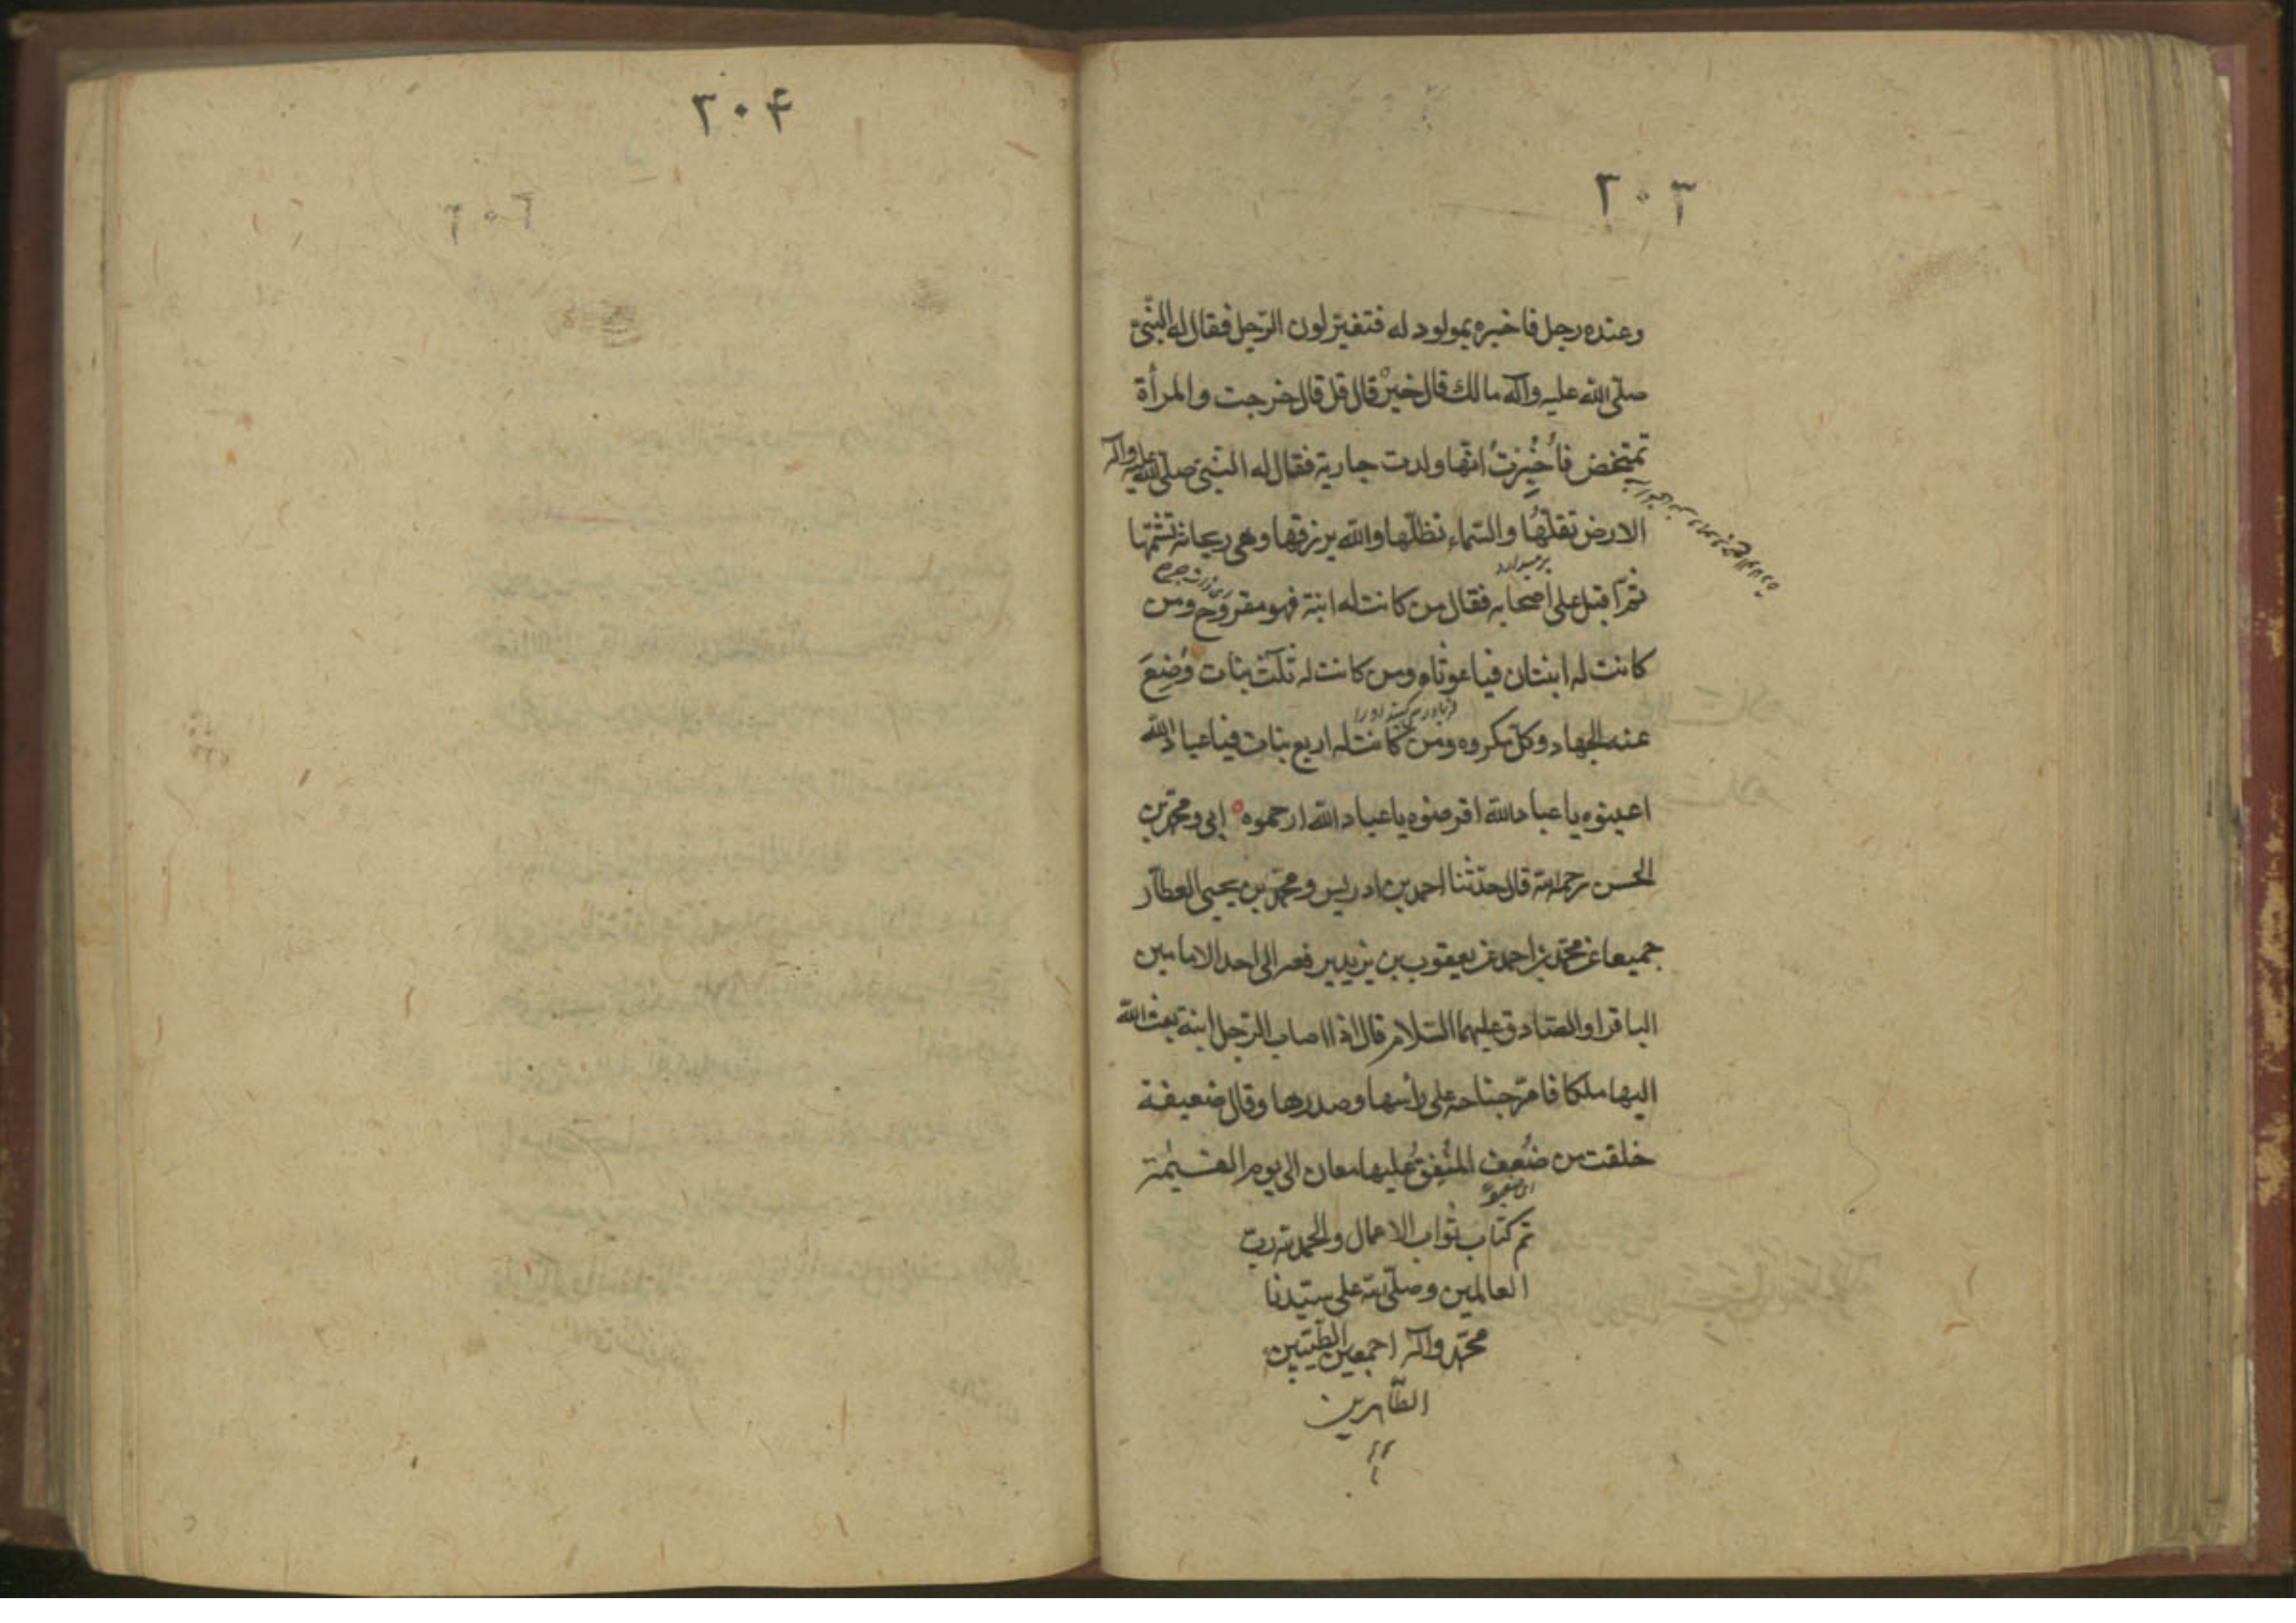 ٢٠٣
وعنده رجل فاخبره بمولود له فتغيّر لون الرّجل فقال له النّبيّ
صلّى الله عليه وآله مالك قال خيرٌ قال قل قال خرجت والمرأة
تمخّض فأُخبِرتُ انّها ولدت جارية فقال له النبيّ صلّى الله عليه وآله
الارض تقلّها والسّماء تظلّها والله يرزقها وهي ريحانة تشمّها
برميدارد
ثمّ اقبل على اصحابه فقال من كانت له ابنة فهو مقروح ومن
كانت له ابنتان فياغوثاه ومن كانت له ثلث بنات وُضِعَ
عنه الجهاد وكلّ مكروه ومن كانت له اربع بنات فياعباد الله
اعينوه ياعباد الله اقرضوه ياعباد الله ارحموه ابي ومحمّد بن
الحسن رحمه الله قال حدّثنا احمد بن ادريس ومحمّد بن يحيى العطّار
جميعا عن محمّد بن احمد عن يعقوب بن يزيد يرفعه الى احد الامامين
الباقر او الصّادق عليهما السّلام قال اذا اصاب الرّجل ابنة بعث الله
اليها ملكا فامرّ جناحه على رأسها وصدرها وقال ضعيفة
خلقت من ضُعف المُنفِقُ عليها معان الى يوم القيٰمة
تم كتاب ثواب الاعمال والحمد لله ربّ
العالمين وصلّى الله على سيّدنا
محمّد وآله اجمعين الطّيّبين
الطّاهرين
٢٠۴